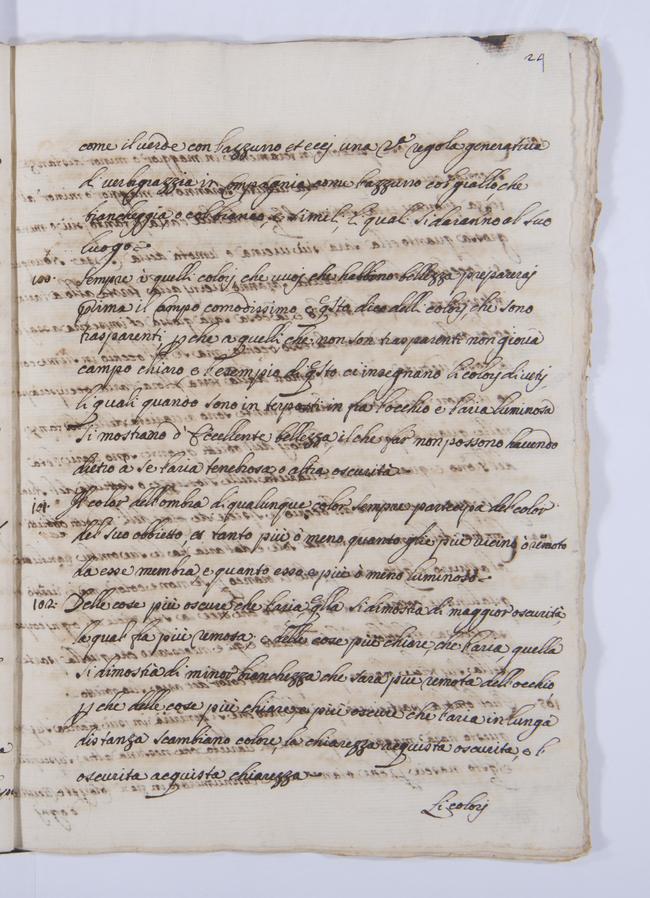 24
come il verde con l'azzurro et ecej una 2.ª regola generativa
di verbigrazzia in compagnia, come l'azzurro col giallo che
biancheggia o col bianco, e simili, li quali si daranno al suo
luogo.
100. Sempre i quelli colorj che vuoj che habbino bellezza prepareraj
prima il campo comodissimo e q.sto dico delli colorj che sono
trasparenti p che a quelli che non son trasparenti non gioua
campo chiaro e l'esempio di q.sto ci insegnano li colorj di vetrj
li quali quando sono interposti in fra l'occhio e l'aria luminosa
si mostrano d'eccellente bellezza il che far non possono hauendo
dietro a se l'aria tenebrosa o altra oscurità.
101. Il color dell'ombra di qualunque color sempre partecipa del color
del suo obbietto, et tanto più ò meno, quanto gli è più vicino ò remoto
da esse membra e quanto esso è più ò meno luminoso.
102. Delle cose più oscure che l'aria q.lla si dimostra di maggior oscurità
la qual fia più remosa, e delle cose più chiare che l'aria, quella
si dimostra di minor bianchezza che sarà più remota dell'occhio,
p che delle cose più chiare, e più oscure che l'aria in lunga
distanza scambiano colore, la chiarezza acquista oscurità, e l'
oscurità acquista chiarezza
Li colorj